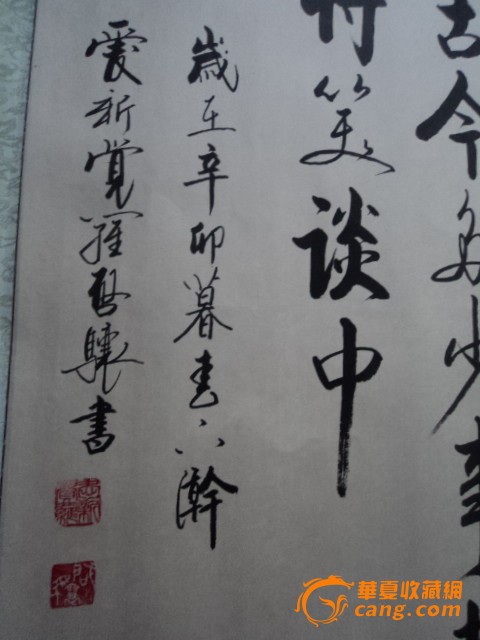 古今多少事
付笑谈中
歲在辛卯暮春下澣
愛新覺羅啓驤書
華夏收藏網
cang.com